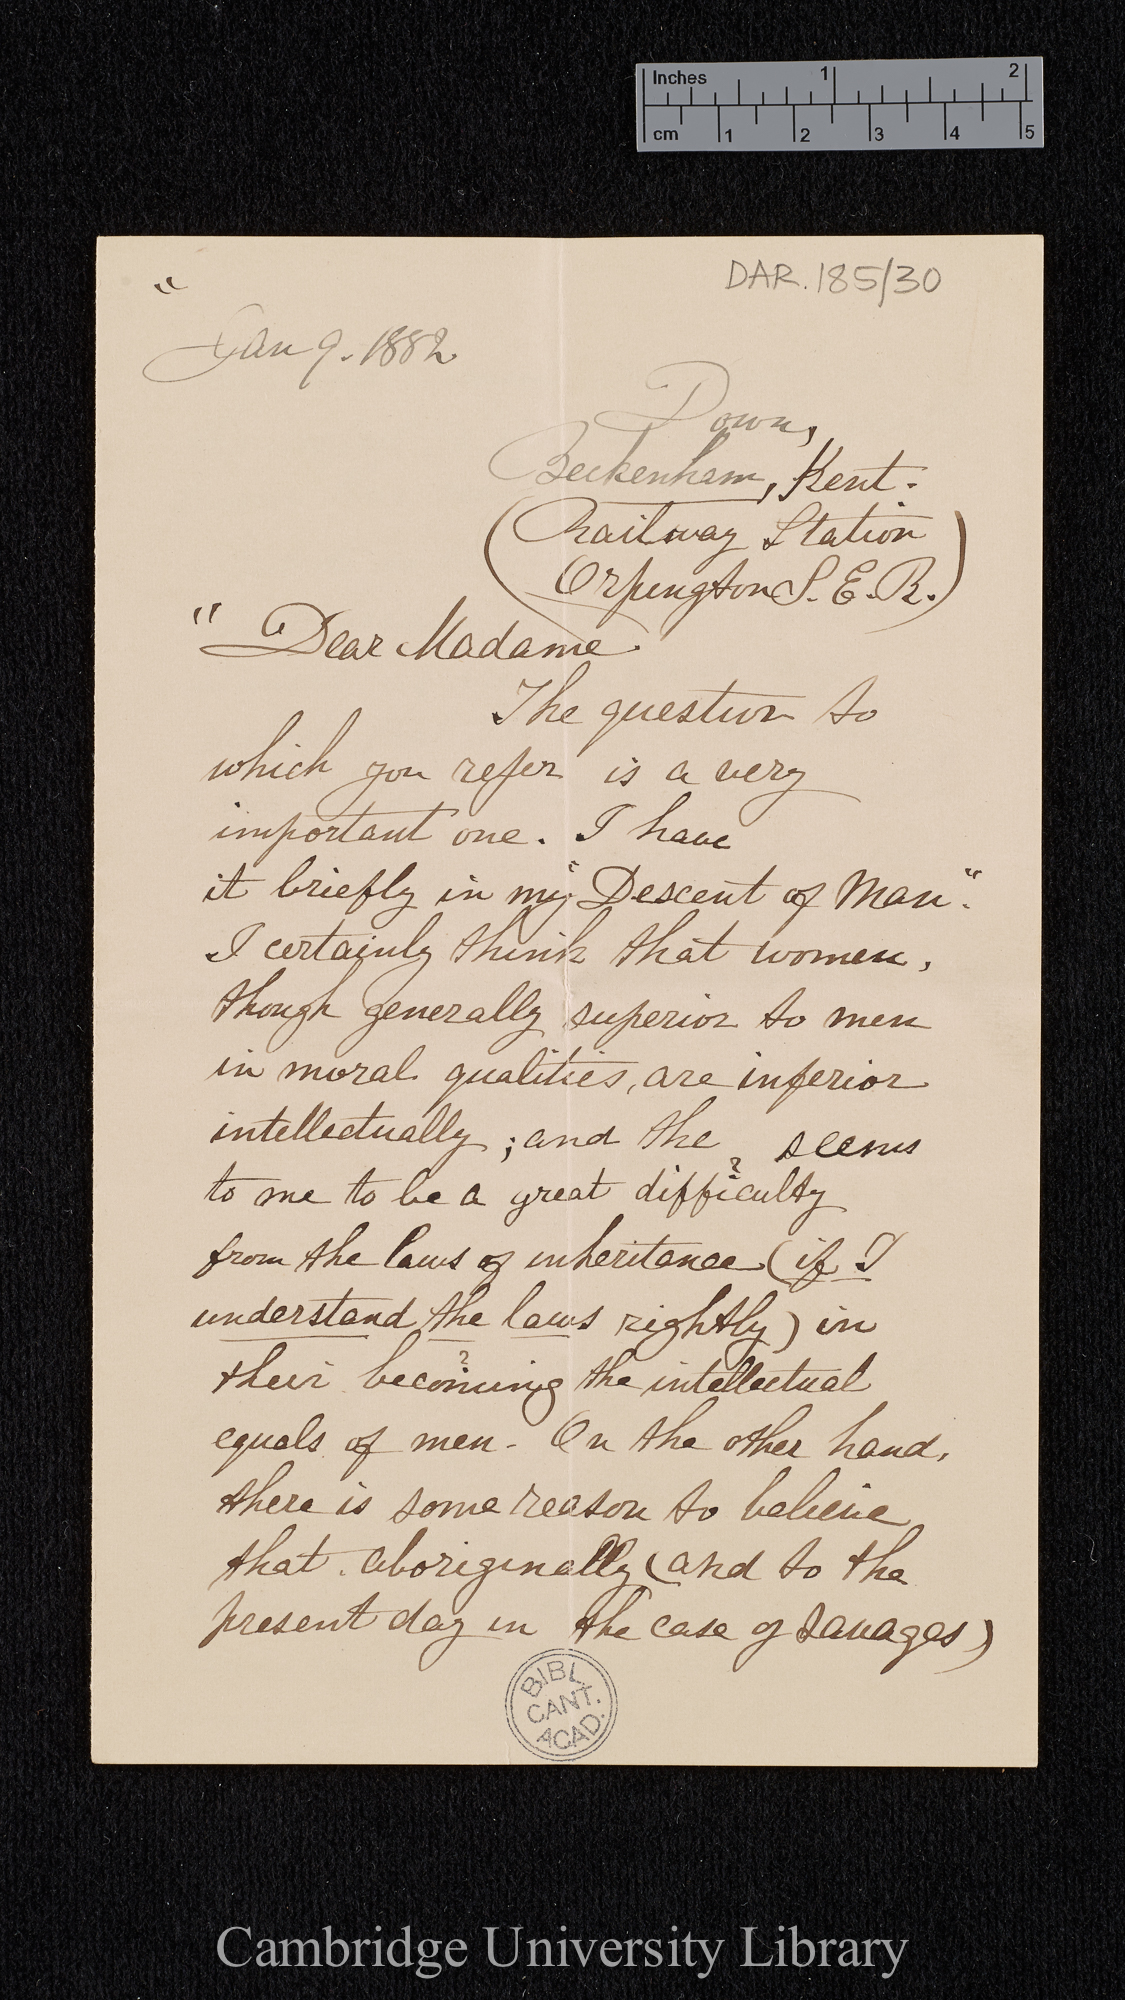 Inches 1 2
cm 1 2 3 4 5
DAR. 185/30
"
Jan 9. 1882
Down,
Beckenham, Kent.
(Railway Station
Orpington S. E. R.)
" Dear Madame.
The question to
which you refer is a very
important one. I have
it briefly in my "Descent of Man".
I certainly think that women,
though generally superior to men
in moral qualities, are inferior
intellectually; and the seems
?
to me to be a great difficulty
from the laws of inheritance (if I
understand the laws rightly) in
?
their becoming the intellectual
equals of men. On the other hand,
there is some reason to believe
that aboriginally (and to the
present day in the case of savages)
BIBL.
CANT.
ACAD.
Cambridge University Library